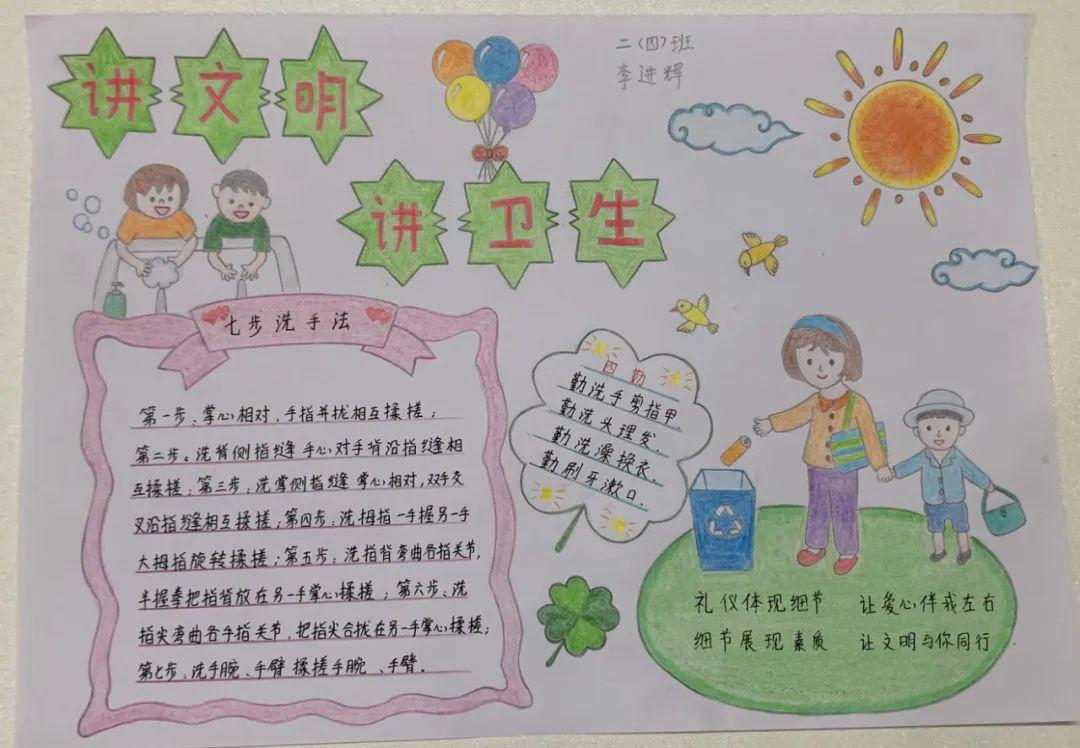 讲文明
二（四）班
李进辉
讲卫生
七步洗手法
第一步：掌心相对，手指并拢相互揉搓；
第二步：洗背侧指缝 手心对手背沿指缝相
互揉搓；第三步：洗掌侧指缝 掌心相对，双手交
叉沿指缝相互揉搓；第四步：洗拇指 一手握另一手
大拇指旋转揉搓；第五步：洗指背弯曲各指关节，
半握拳把指背放在另一手掌心揉搓；第六步：洗
指尖弯曲各手指关节，把指尖合拢在另一手掌心揉搓；
第七步：洗手腕、手臂 揉搓手腕、手臂．
四勤
勤洗手剪指甲．
勤洗头理发．
勤洗澡换衣．
勤刷牙漱口．
礼仪体现细节 让爱心伴我左右
细节展现素质 让文明与你同行